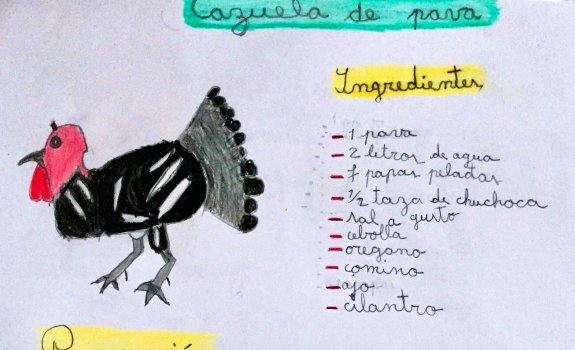 Cazuela de pava
Ingredientes
- 1 pava
- 2 litros de agua
- 7 papas peladas
- 1/2 taza de chuchoca
- sal a gusto
- cebolla
- oregano
- comino
- ajo
- cilantro